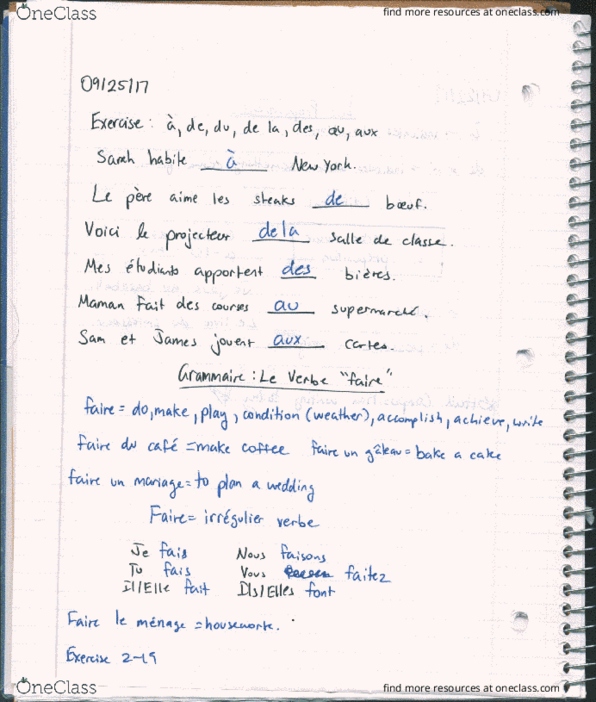 OneClass
find more resources at oneclass.com
09/25/17
Exercise: à, de, du, de la, des, au, aux
Sarah habite à New York.
Le père aime les steaks de bœuf.
Voici le projecteur de la salle de classe.
Mes étudiants apportent des bières.
Maman fait des courses au supermarché.
Sam et James jouent aux cartes.
Grammaire: Le Verbe "faire"
faire = do, make, play, condition (weather), accomplish, achieve, write
faire du café = make coffee faire un gâteau = bake a cake
faire un mariage = to plan a wedding
Faire = irrégulier verbe
Je fais Nous faisons
Tu fais Vous faitez
Il/Elle fait Ils/Elles font
Faire le ménage = housework.
Exercise 2-19
OneClass
find more resources at oneclass.com